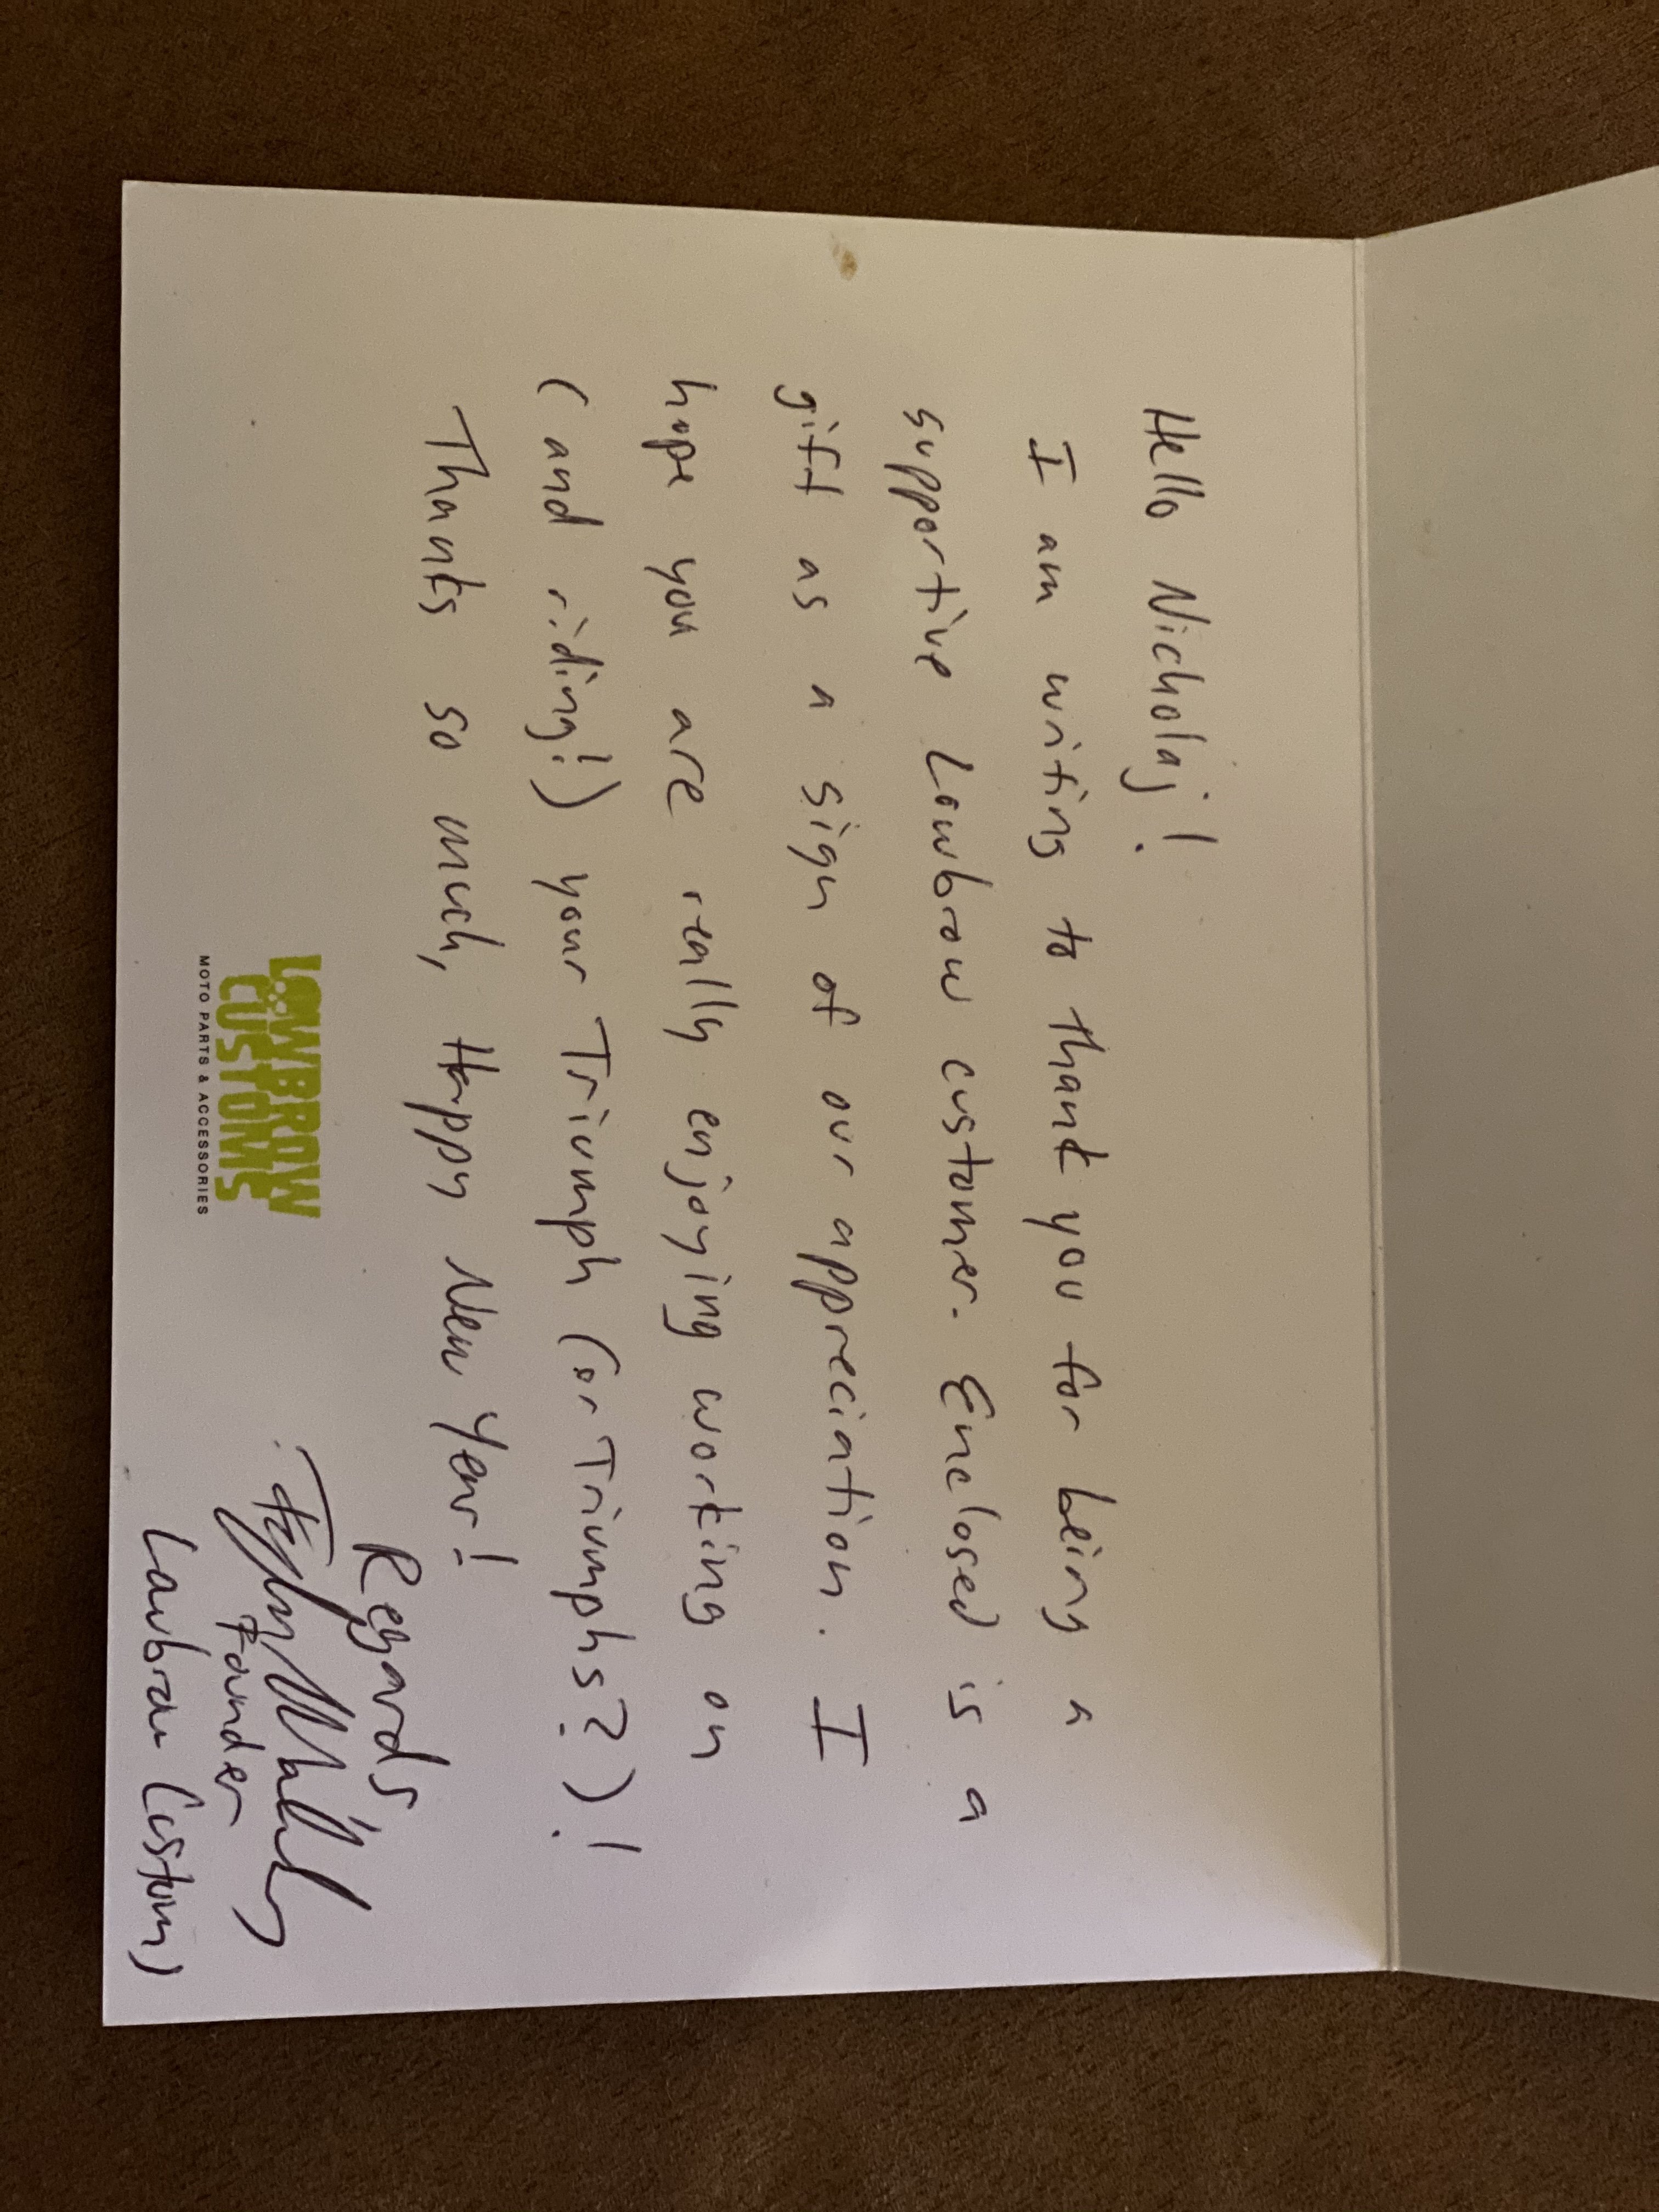 Hello Nicholaj!
I am writing to thank you for being a
supportive Lowbrow customer. Enclosed is a
gift as a sign of our appreciation. I
hope you are really enjoying working on
(and riding!) your Triumph (or Triumphs?)!
Thanks so much, Happy New Year!
Regards
Founder
Lowbrow Customs
LOWBROW
CUSTOMS
MOTO PARTS & ACCESSORIES